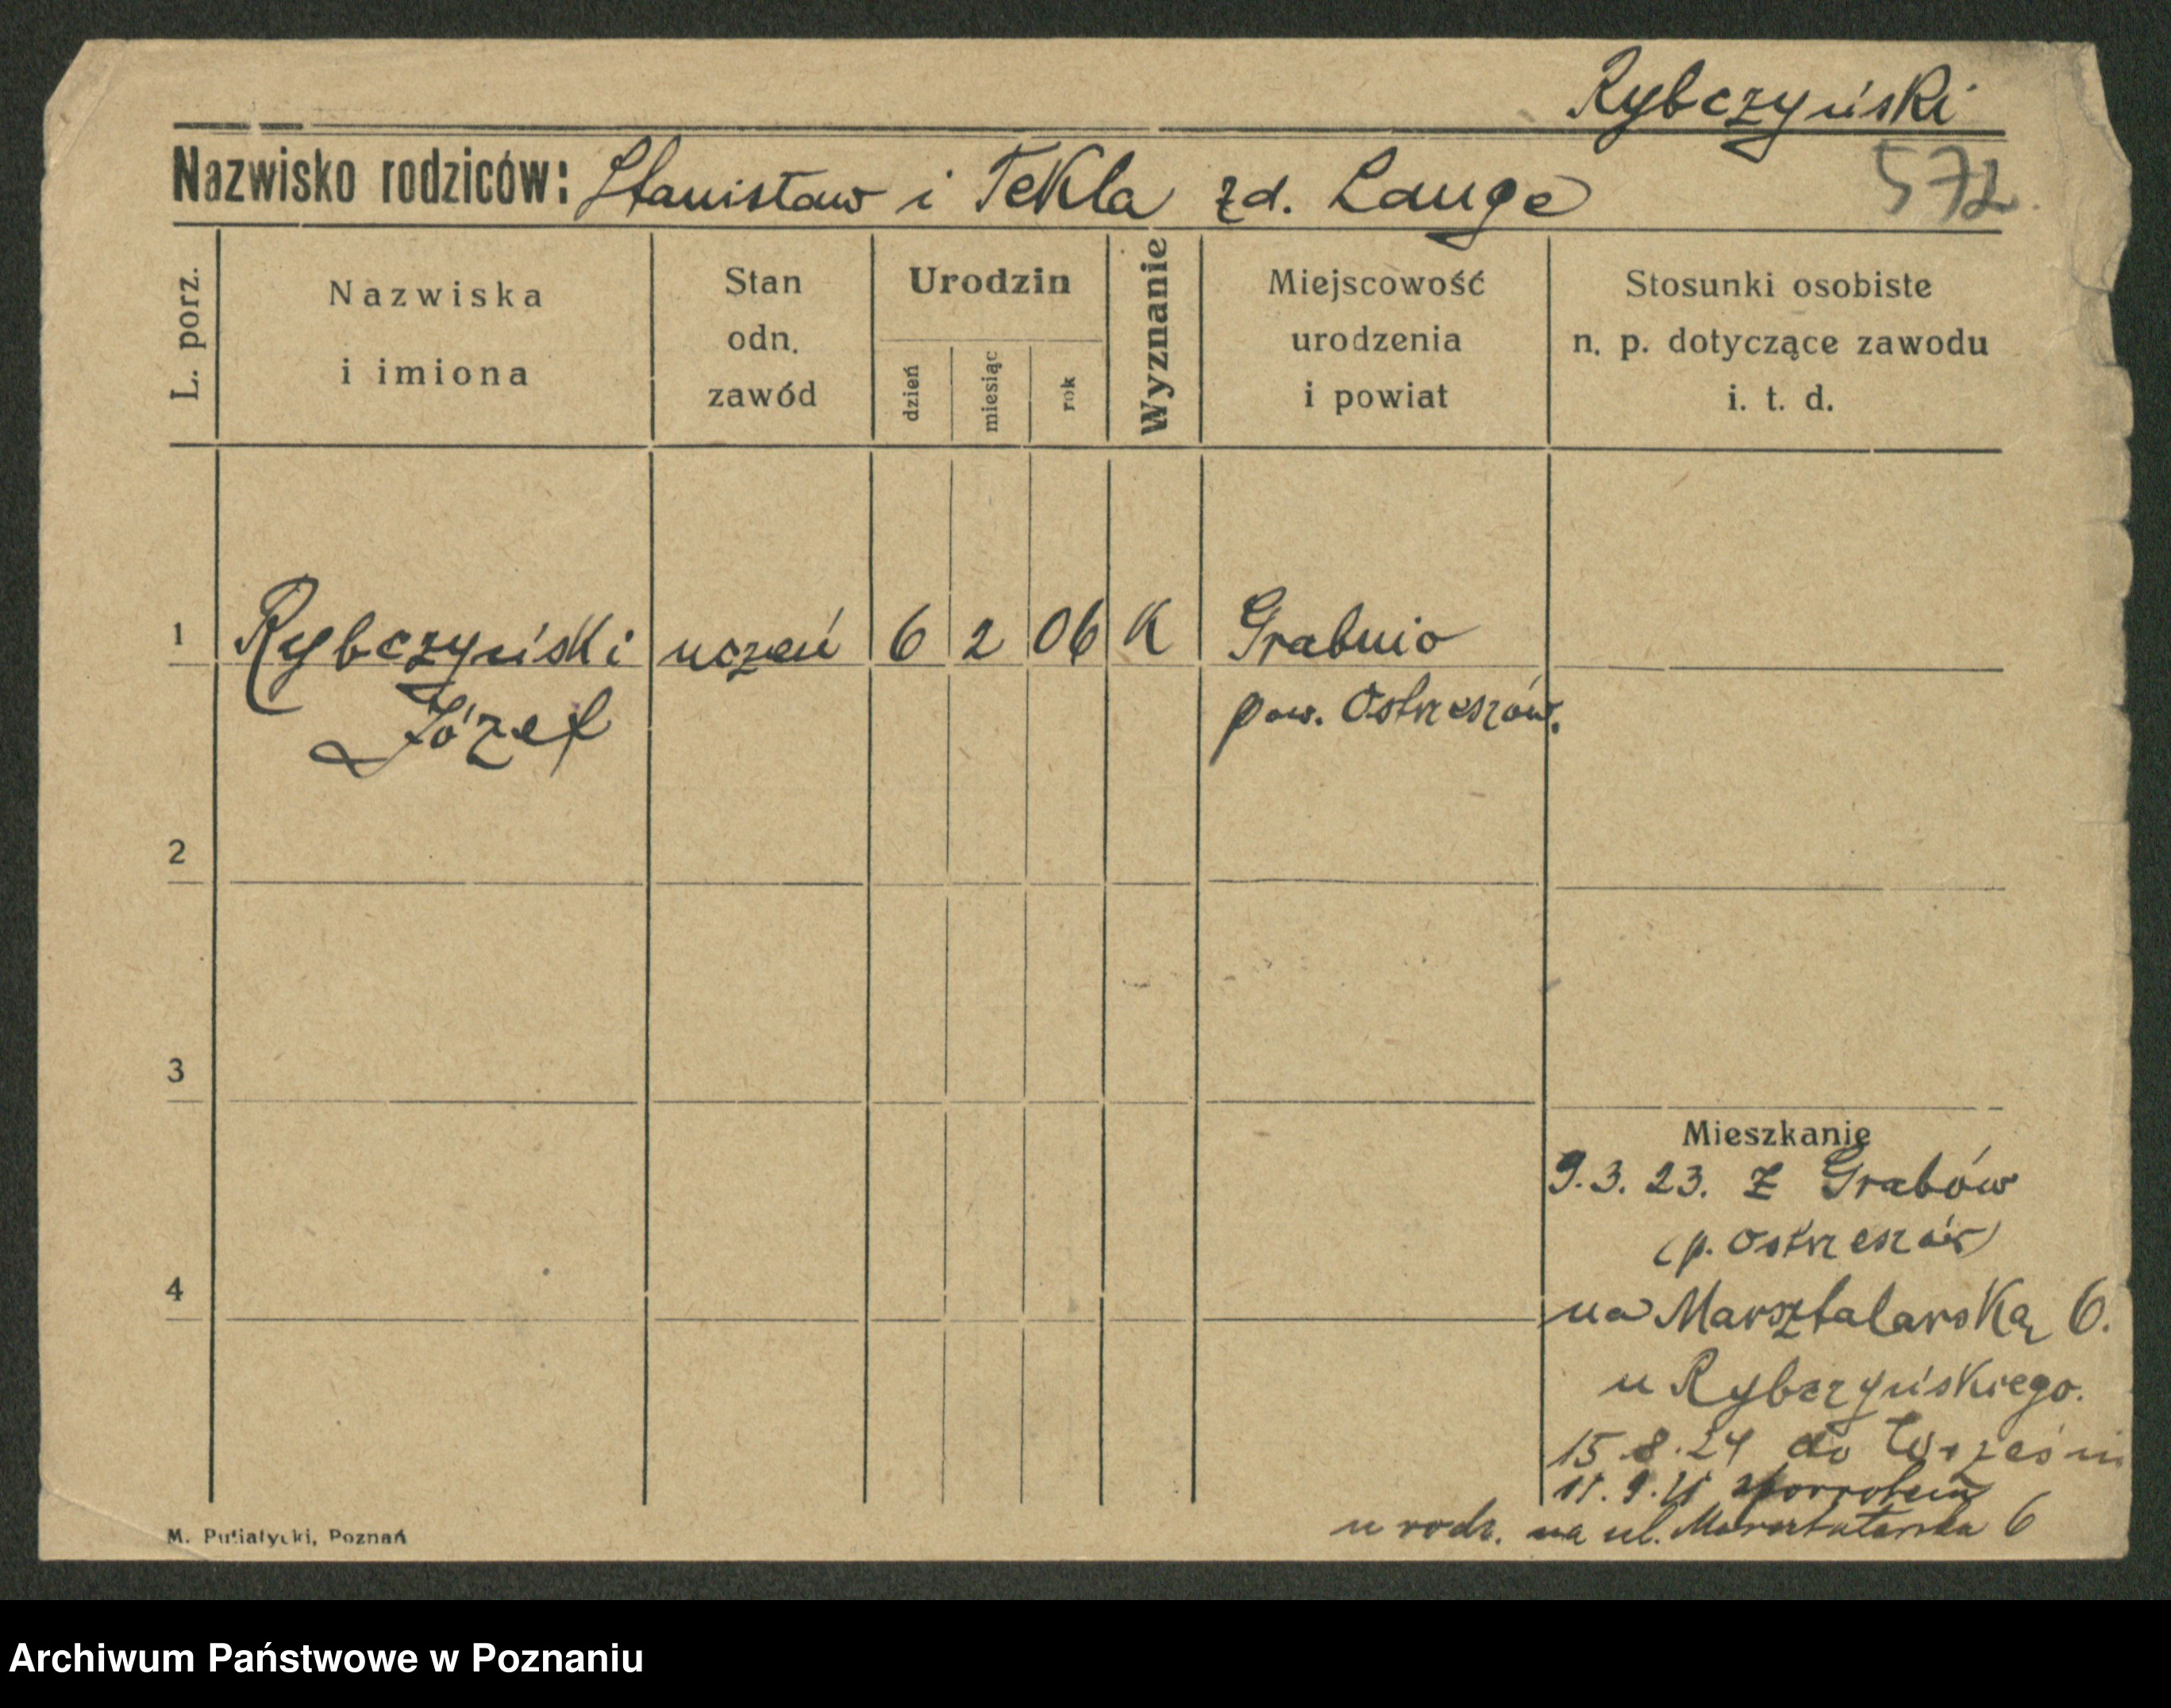 Rybczyński
Nazwisko rodziców: Stanisław i Tekla zd. Lange
572
L. porz.
Nazwiska
i imiona
Stan
odn.
zawód
Urodzin
dzień
miesiąc
rok
Wyznanie
Miejscowość
urodzenia
i powiat
Stosunki osobiste
n. p. dotyczące zawodu
i. t. d.
1 Rybczyński uczeń 6 2 06 K Grabnio
Józef pow. Ostrzeszów.
2
3
Mieszkanie
9.3.23. z Grabów
(p. Ostrzeszów)
4
na Marsztalarską 6.
u Rybczyńskiego.
15.8.24 do Wrześni
zpowrotem
u rodz. na ul. Marsztalarska 6
M. Putiatycki, Poznań
Archiwum Państwowe w Poznaniu